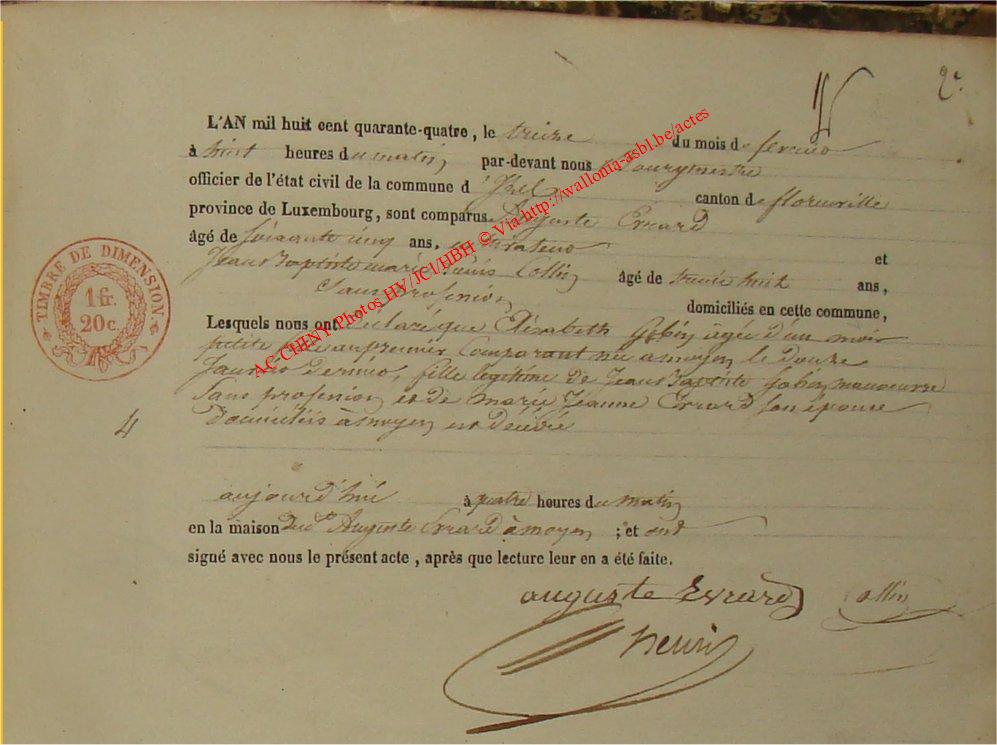 2e
L'AN mil huit cent quarante-quatre, le treize du mois de fevrier
à huit heures du matin, par-devant nous Bourgmestre
officier de l'état civil de la commune d'Izel canton de florenville
province de Luxembourg, sont comparus Auguste Evrard
âgé de soixante cinq ans, cultivateur et
Jean Baptiste marie Denis Collin âgé de trente huit ans,
Sans profession domiciliés en cette commune,
Lesquels nous ont déclaré que Elisabeth Gobin agée d'un mois
petite fille au premier Comparant née a moyen le douze
Janvier dernier, fille legitime de Jean Baptiste Gobin manoeuvre
Sans profession et de marie Jeanne Evrard son épouse
Domiciliés à moyen est décédée
4
aujourd'hui à quatre heures du matin
en la maison dudt Auguste Evrard à moyen ; et ont
signé avec nous le présent acte, après que lecture leur en a été faite.
auguste Evrard Collin
henri
TIMBRE DE DIMENSION
1 fr.
20 c.
AC CHENY Photos HV/JCl/HBH © Via http://wallonia-asbl.be/actes